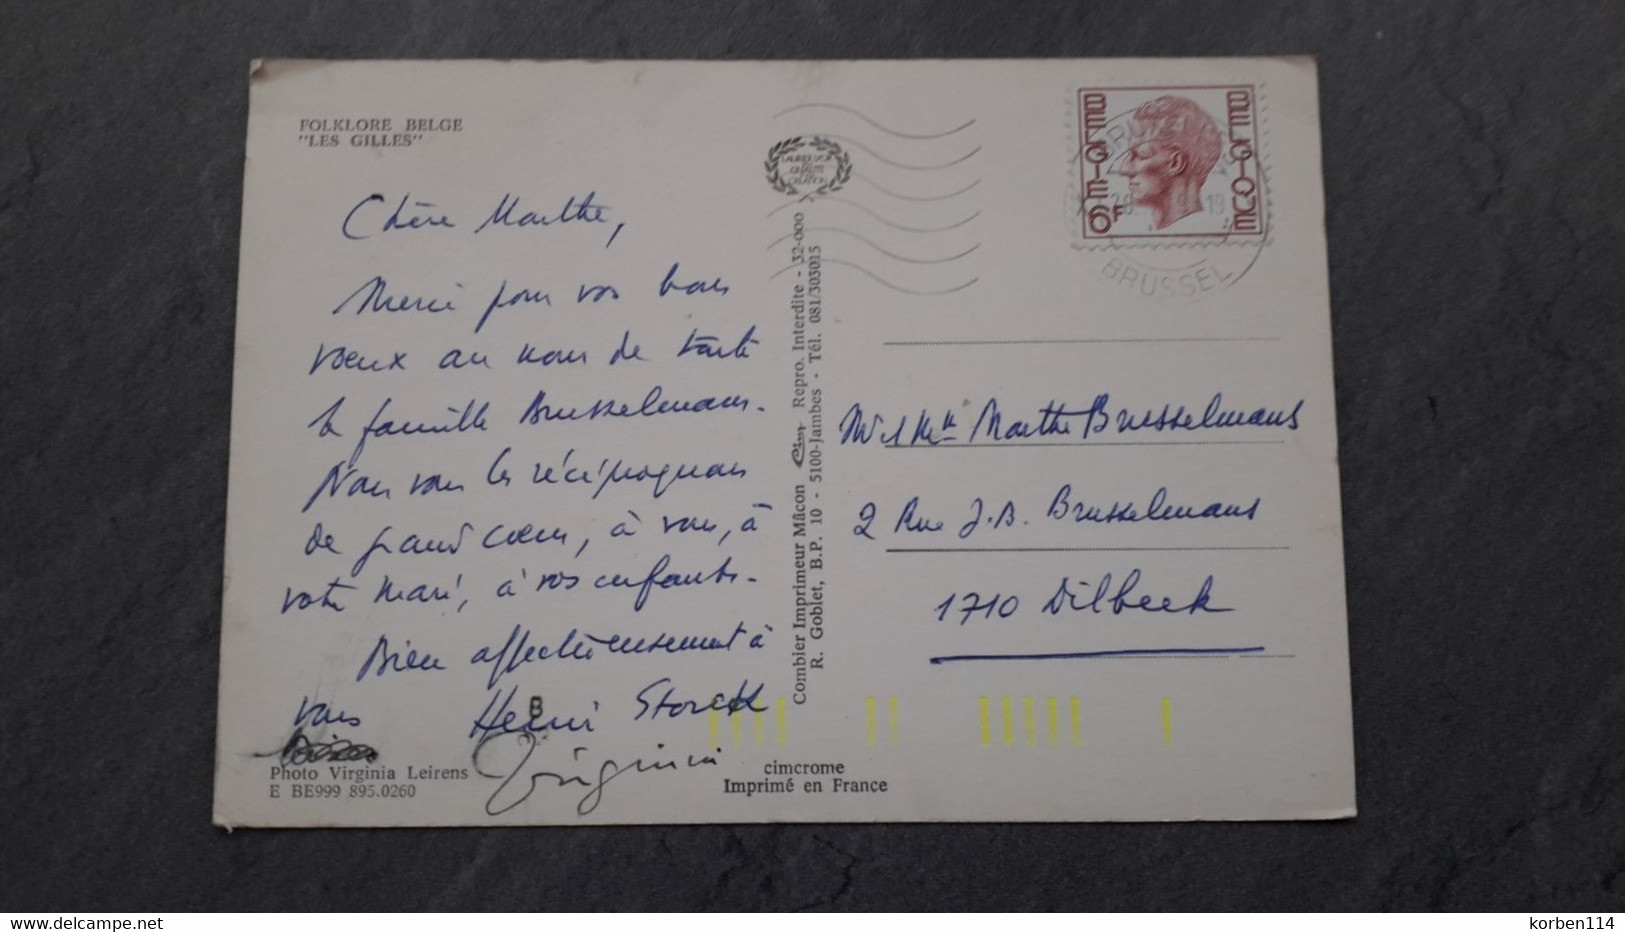 FOLKLORE BELGE
"LES GILLES"
Chère Marthe,
Merci pour vos bons
vœux au nom de toute
la famille Brusselmans.
Nous vous les réciproquons
de grand cœur, à vous, à
votre mari, à vos enfants.
Bien affectueusement à
vous
Henri Storck
Virginia
B
Photo Virginia Leirens
E BE999 895.0260
cimcrome
Imprimé en France
Combier Imprimeur Mâcon Cim Repro. Interdite - 32-000
R. Goblet, B.P. 10 - 5100-Jambes - Tél. 081/303015
LAURIER D'OR
DE
QUALITE
CREATION
BELGIE
BELGIQUE
6F
28
19
BRUSSEL
Marthe Brusselmans
2 Rue J.B. Brusselmans
1710 Dilbeek
DELCAMPE.NET
korben114